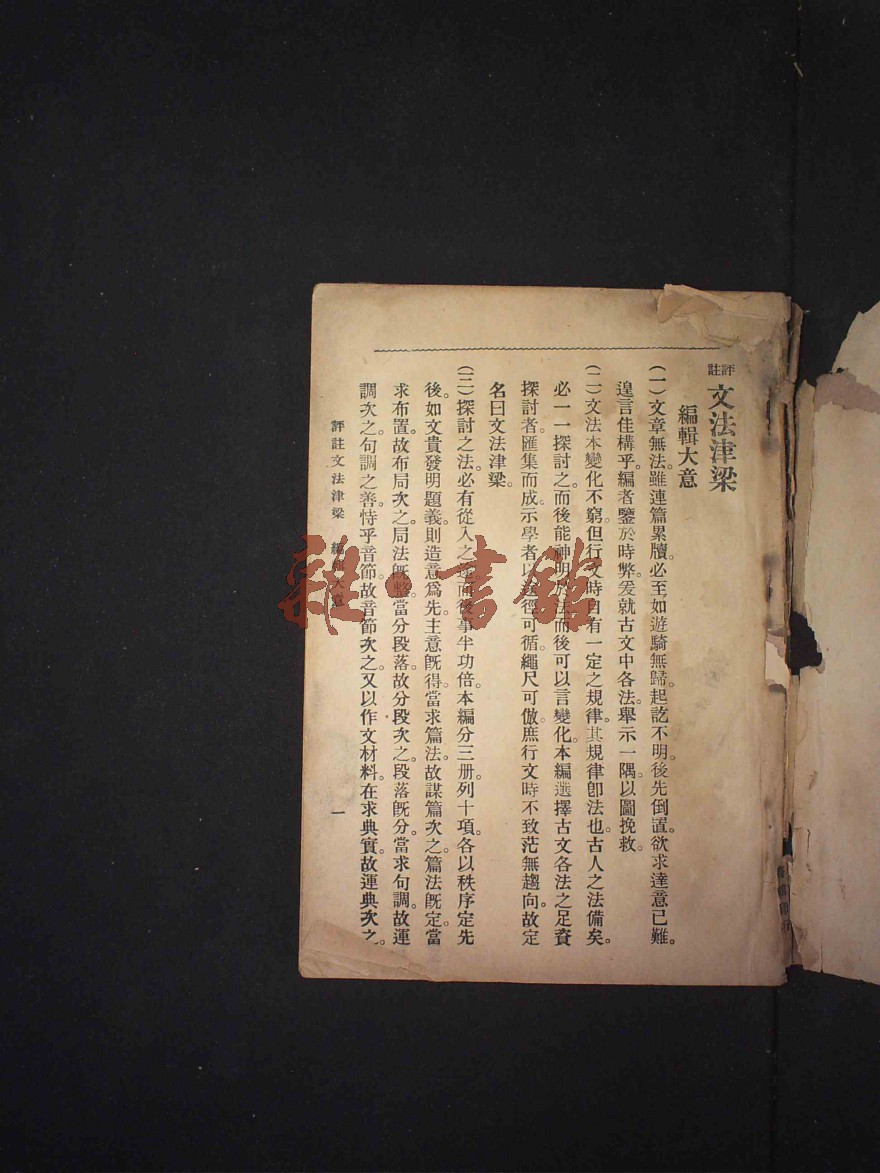 評註文法津梁
編輯大意
(一)文章無法。雖連篇累牘。必至如遊騎無歸。起訖不明。後先倒置。欲求達意已難。
遑言佳構乎。編者鑒於時弊。爰就古文中各法。舉示一隅。以圖挽救。
(二)文法本變化不窮。但行文時自有一定之規律。其規律卽法也。古人之法備矣。
必一一探討之。而後能神明於法。而後可以言變化。本編選擇古文各法之足資
探討者。匯集而成。示學者以途徑可循。繩尺可倣。庶行文時不致茫無趨向。故定
名曰文法津梁。
(三)探討之法。必有從入之途。而後事半功倍。本編分三册。列十項。各以秩序定先
後。如文貴發明題義。則造意爲先。主意旣得。當求篇法。故謀篇次之。篇法旣定。當
求布置。故布局次之。局法旣整。當分段落。故分段次之。段落旣分。當求句調。故運
調次之。句調之善。恃乎音節。故音節次之。又以作文材料。在求典實。故運典次之。
評註文法津梁 編輯大意 一
雜·書館